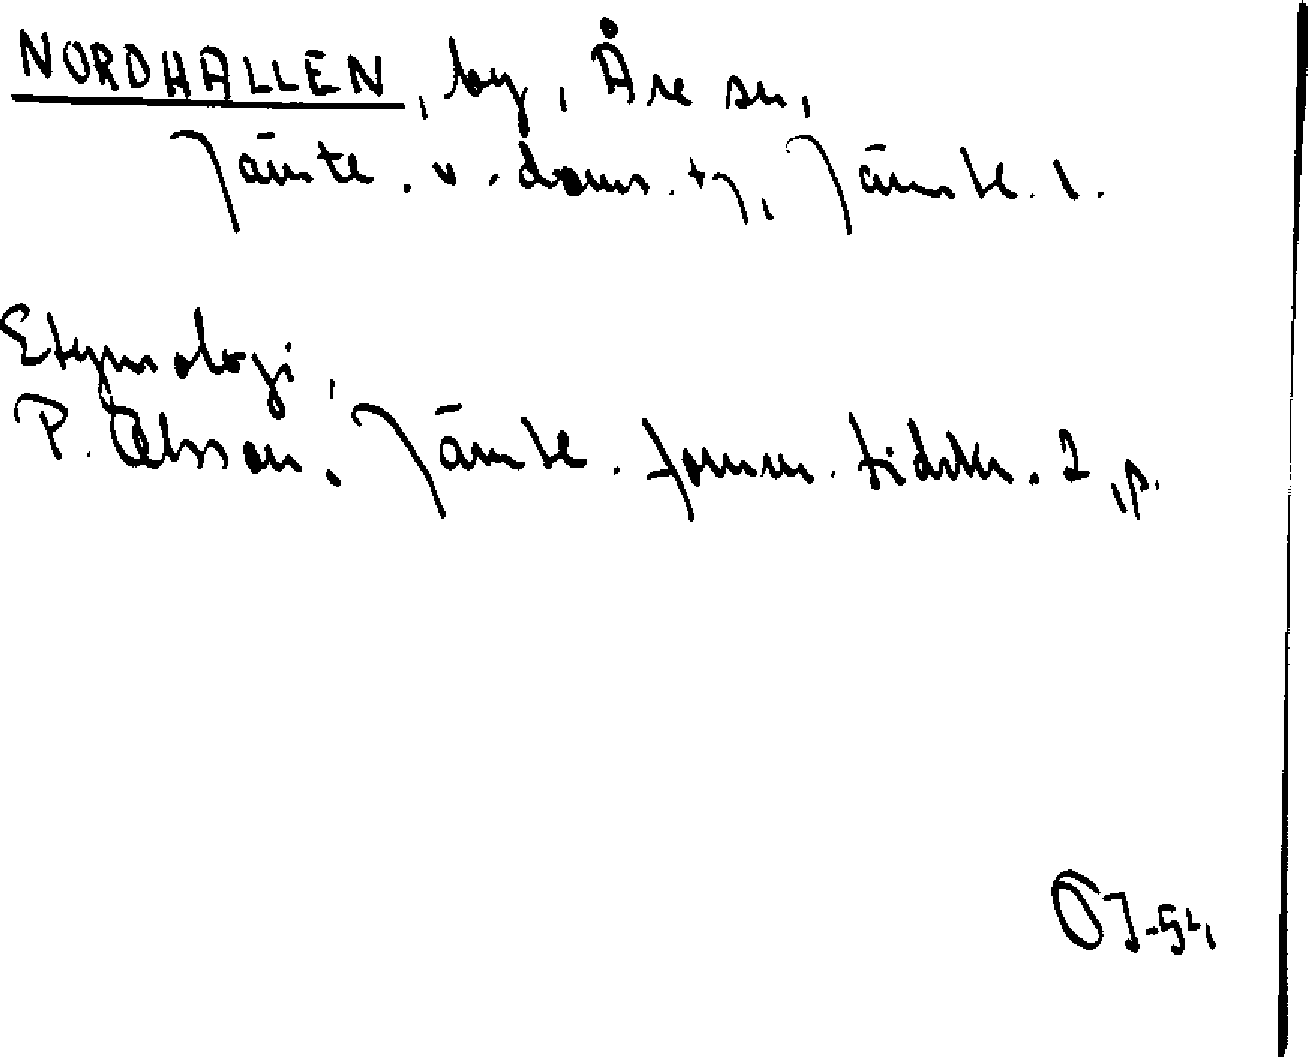 NORDHALLEN, by, Åre sn,
Jämtl. v. doms. t/, Jämtl. l.
Etymologi,
P. Olsson, Jämtl. fornm. tidskr. 2, p.
OJ-54,